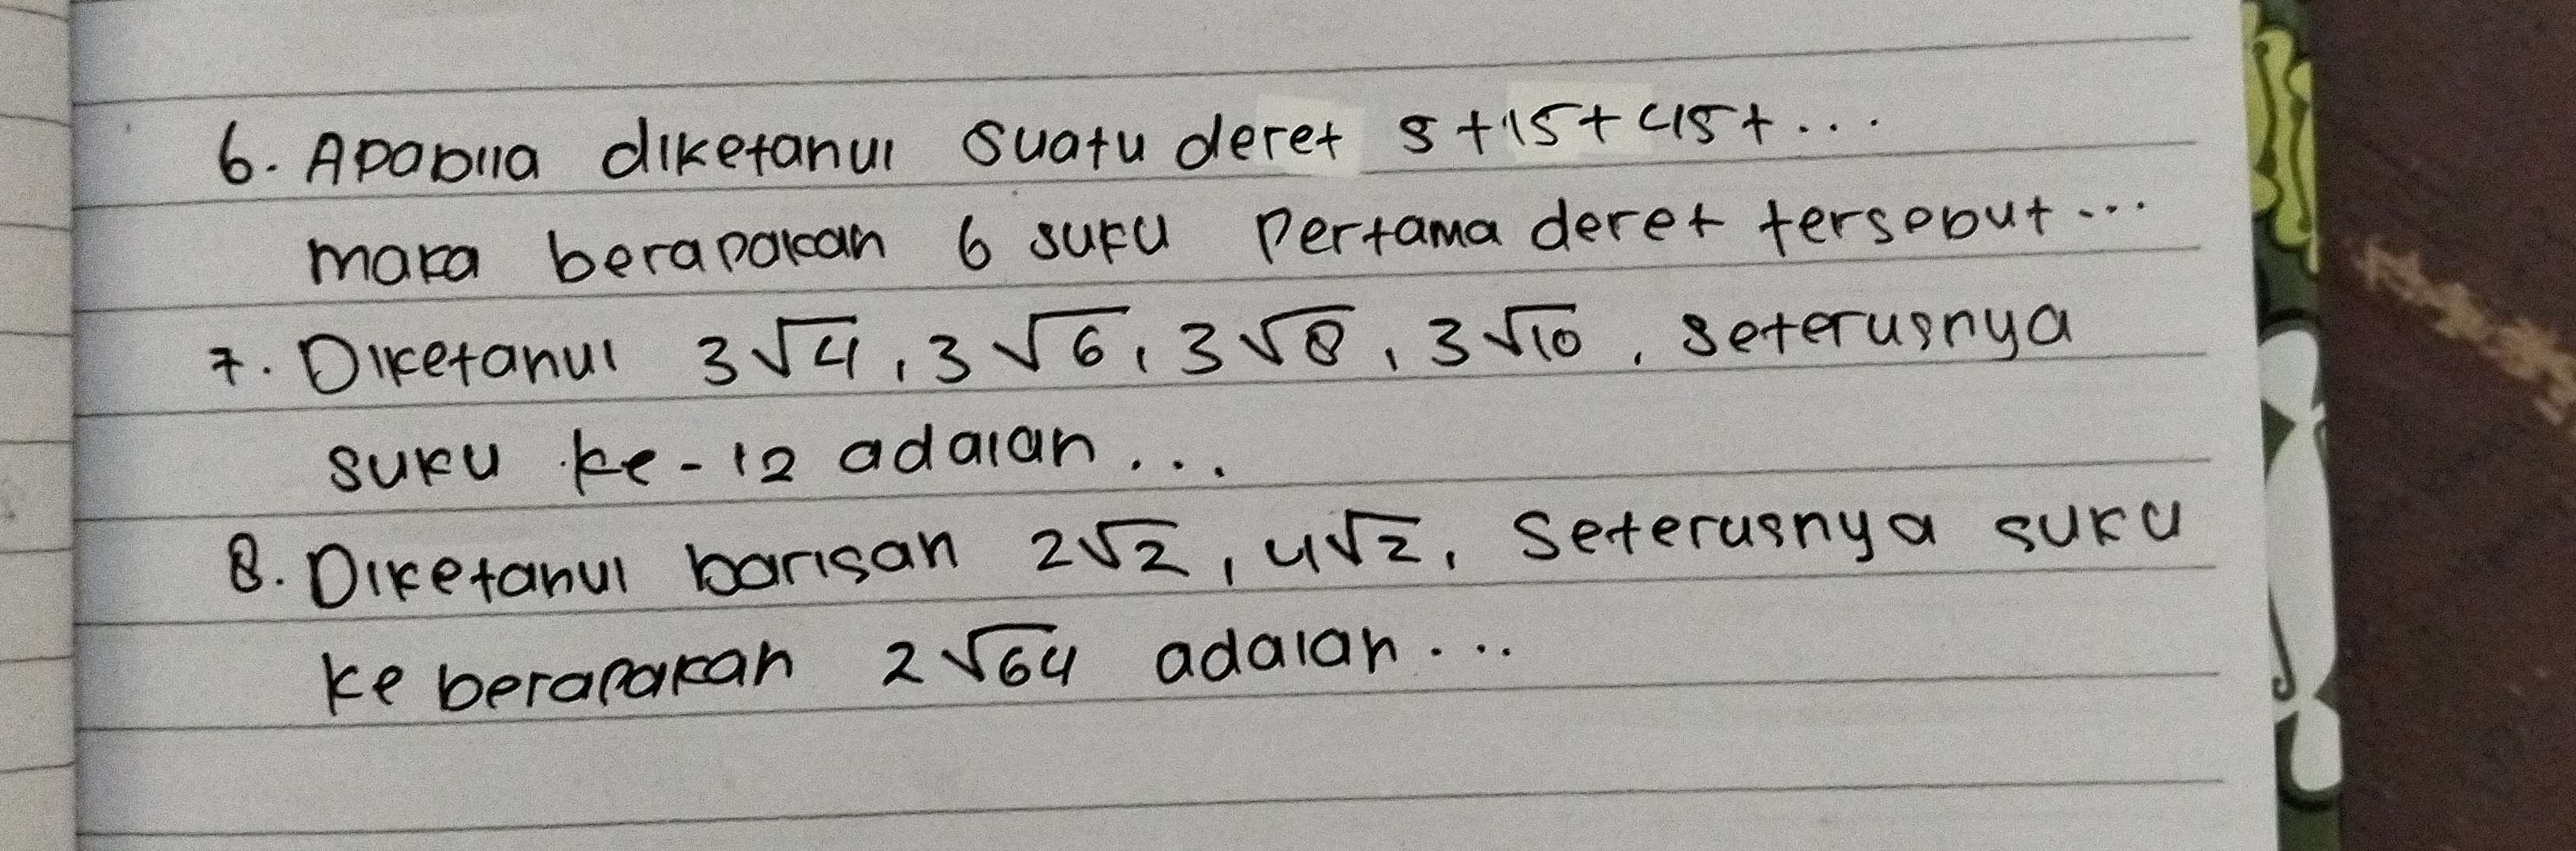 6. Apabila diketahui suatu deret 5+15+45+...
maka berapakah 6 suku pertama deret tersebut...
7. Diketahui 3√4, 3√6, 3√8, 3√10, seterusnya
suku ke-12 adalah...
8. Diketahui barisan 2√2, 4√2, seterusnya suku
ke berapakah 2√64 adalah...